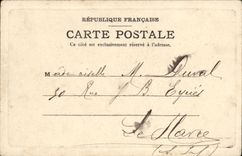 RÉPUBLIQUE FRANÇAISE
CARTE POSTALE
Ce côté est exclusivement réservé à l'adresse.
Mademoiselle M. Duval
30 Rue J B Eyriès
Le Havre